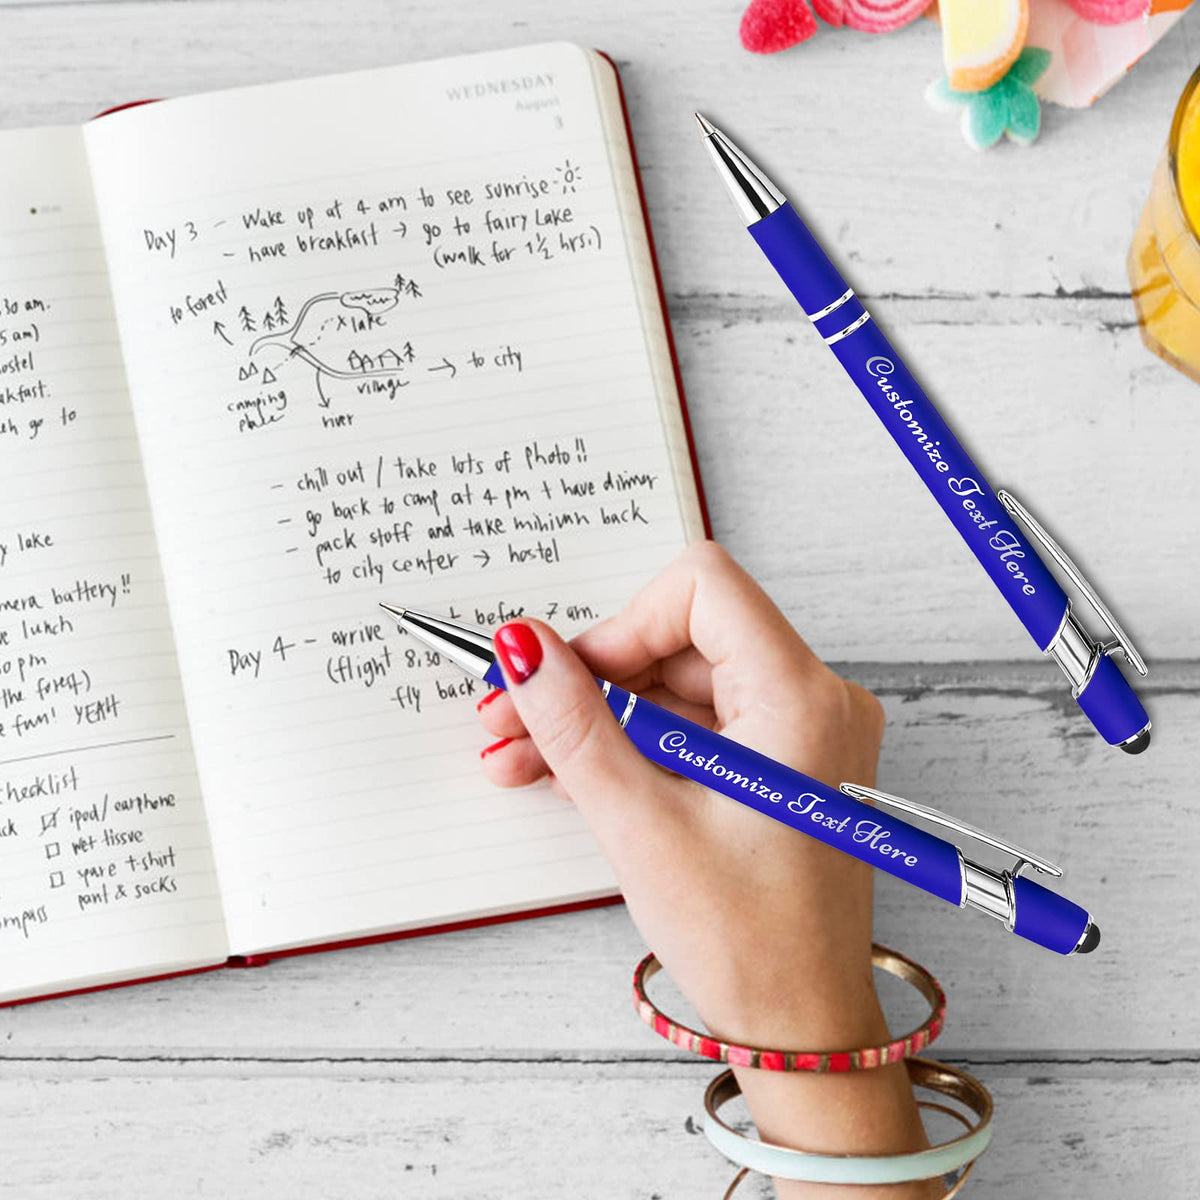 30 am.
5 am)
ostel
akfast.
go to
y lake
mera battery!!
lunch
0 pm
the forest)
fun! YEAH
checklist
ck ☑ ipod/ earphone
☐ wet tissue
☐ spare t-shirt
pant & socks
ompass
WEDNESDAY
August
3
Day 3 - Wake up at 4 am to see sunrise
- have breakfast → go to fairy Lake
(walk for 1½ hrs.)
to forest
x lake
village → to city
camping
place
river
- chill out / take lots of photo!!
- go back to camp at 4 pm + have dinner
- pack stuff and take minivan back
to city center → hostel
Day 4 - arrive before 7 am.
(flight 8,30
fly back
Customize Text Here
Customize Text Here